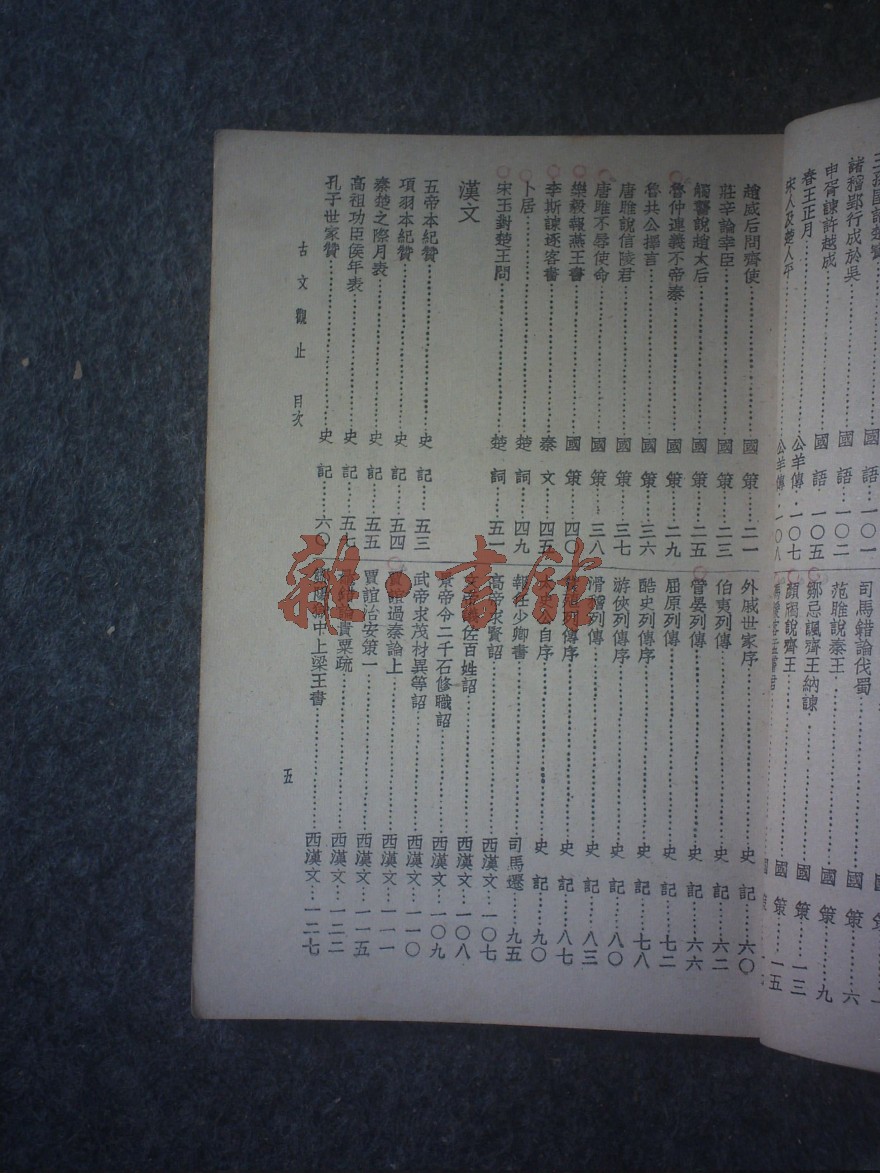 諸稽郢行成於吳………國 語…一〇二
申胥諫許越成………國 語…一〇五
春王正月………公羊傳…一〇七
宋人及楚人平………公羊傳…一〇八
司馬錯論伐蜀
范雎說秦王………國 策…六
鄒忌諷齊王納諫………國 策…九
顏斶說齊王………國 策…一三
國 策…一五
趙威后問齊使………國 策…二一
莊辛論幸臣………國 策…二三
觸讋說趙太后………國 策…二五
魯仲連義不帝秦………國 策…二九
魯共公擇言………國 策…三六
唐雎說信陵君………國 策…三七
唐雎不辱使命………國 策…三八
樂毅報燕王書………國 策…四〇
李斯諫逐客書………秦 文…四五
卜居………楚 詞…四九
宋玉對楚王問………楚 詞…五一
漢文
五帝本紀贊………史 記…五三
項羽本紀贊………史 記…五四
秦楚之際月表………史 記…五五
高祖功臣侯年表………史 記…五七
孔子世家贊………史 記…六〇
外戚世家序………史 記…六〇
伯夷列傳………史 記…六二
管晏列傳………史 記…六六
屈原列傳………史 記…七二
酷吏列傳序………史 記…七八
游俠列傳序………史 記…八〇
滑稽列傳………史 記…八三
列傳序………史 記…八七
自序………史 記…九〇
報任少卿書………司馬遷…九五
高帝求賢詔………西漢文…一〇七
佐百姓詔………西漢文…一〇八
景帝令二千石修職詔………西漢文…一〇九
武帝求茂材異等詔………西漢文…一一〇
賈誼過秦論上………西漢文…一一一
賈誼治安策一………西漢文…一一五
貴粟疏………西漢文…一二二
獄中上梁王書………西漢文…一二七
古文觀止 目次
五
雜·書館